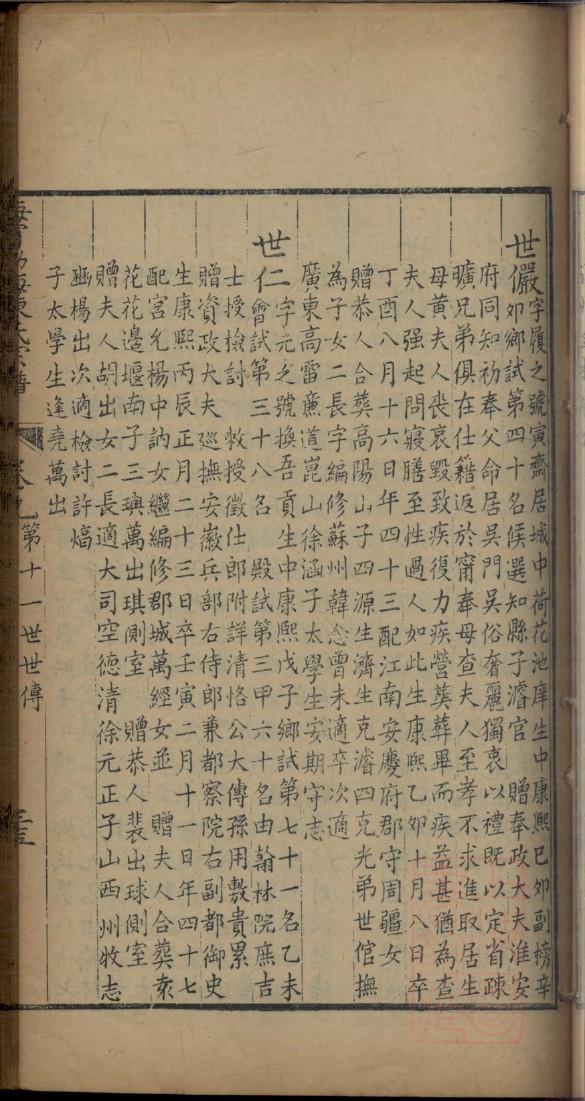 世儼字履之號寅齋居城中荷花池庠生中康熙己卯副榜辛
卯鄉試第四十名候選知縣子濬官　贈奉政大夫淮安
府同知初奉父命居吳門吳俗奢麗獨衷以禮既以定省疎
曠兄弟俱在仕籍返於甯奉母查夫人至孝不求進取居生
母黃夫人喪哀毀致疾復力疾營葬葬畢而疾益甚猶為查
夫人强起問寢膳至性過人如此生康熙乙卯十月八日卒
丁酉八月十六日年四十三配江南安慶府郡守周疆女
贈恭人合葬高陽山子四源生濟生克濬四克光弟世倌撫
為子女二長字編修蘇州韓念曾未適卒次適
廣東高雷亷道崑山徐涵子太學生安期守志
世仁字元之號換吾貢生中康熙戊子鄉試第七十一名乙未
會試第三十八名　殿試第三甲六十名由翰林院庶吉
士授檢討　敕授徵仕郎附詳清恪公大傳孫用敷貴累
贈資政大夫　巡撫安徽兵部右侍郎兼都察院右副都御史
生康熙丙辰正月二十三日卒壬寅二月十一日年四十七
配宮允楊中訥女繼編修郡城萬經女並　贈夫人合葬袁
花花邊堰南子三璵萬出琪側室　贈恭人裴出球側室
贈夫人胡出女二長適大司空德清徐元正子山西州牧志
楊出次適檢討許焞
子太學生逢堯萬出
第十一世世傳